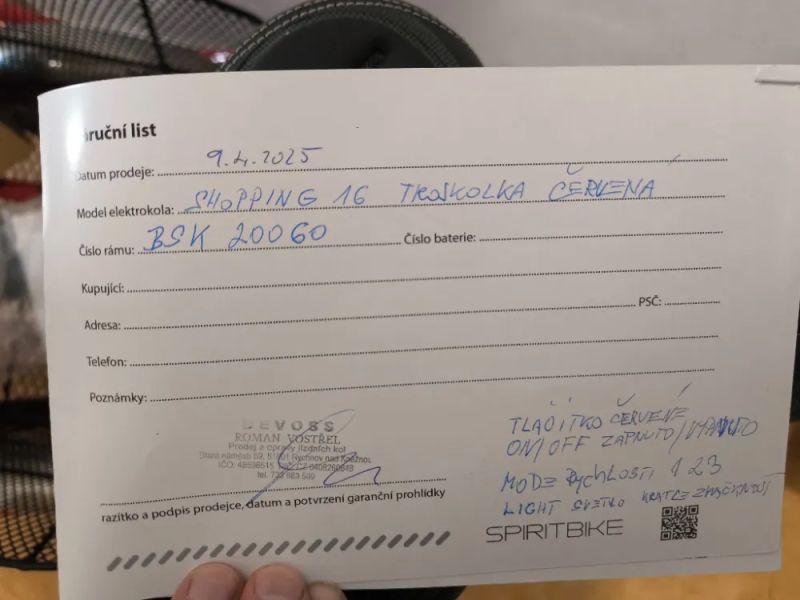 áruční list
Datum prodeje: 9.4.2025
Model elektrokola: SHOPPING 16 TROJKOLKA ČERVENÁ
Číslo rámu: BSK 20060 Číslo baterie:
Kupující:
Adresa: PSČ:
Telefon:
Poznámky:
DEVOSS
ROMAN VOSTŘEL
Prodej a opravy jízdních kol
Staré náměstí 59, 51601 Rychnov nad Kněžnou
tel.
razítko a podpis prodejce, datum a potvrzení garanční prohlídky
TLAČÍTKO ČERVENÉ
ON/OFF ZAPNUTO/VYPNUTO
MODE RYCHLOSTI 1 2 3
LIGHT SVĚTLO KRÁTCE
SPIRITBIKE